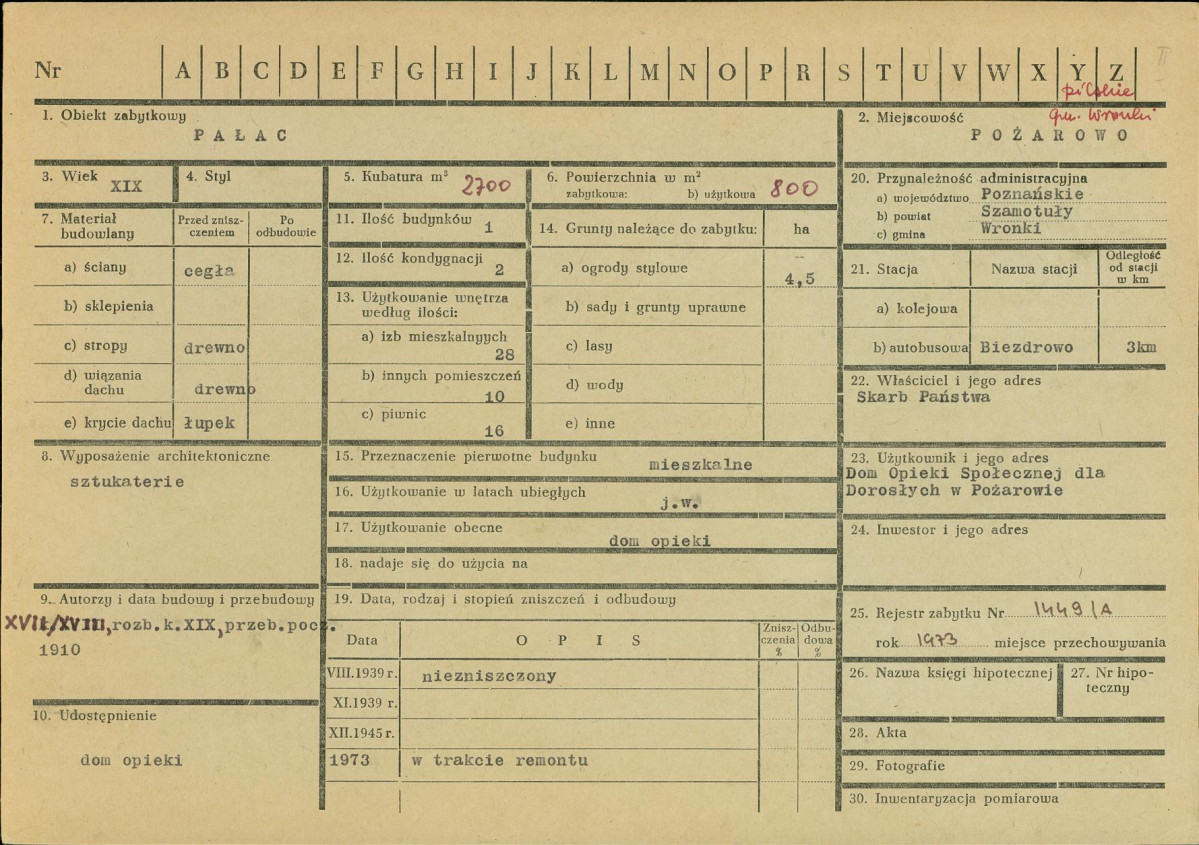 Nr A B C D E F G H I J K L M N O P R S T U V W X Y Z
pilskie
gm. Wronki
1. Obiekt zabytkowy
PAŁAC
2. Miejscowość
POŻAROWO
3. Wiek
XIX
4. Styl
5. Kubatura m³ 2700
6. Powierzchnia w m²
zabytkowa: b) użytkowa 800
20. Przynależność administracyjna
a) województwo Poznańskie
b) powiat Szamotuły
c) gmina Wronki
7. Materiał budowlany
Przed znisz-
czeniem
Po
odbudowie
a) ściany cegła
b) sklepienia
c) stropy drewno
d) wiązania
dachu drewno
e) krycie dachu łupek
11. Ilość budynków
1
12. Ilość kondygnacji
2
13. Użytkowanie wnętrza
według ilości:
a) izb mieszkalnyych
28
b) innych pomieszczeń
10
c) piwnic
16
14. Grunty należące do zabytku: ha
a) ogrody stylowe 4,5
b) sady i grunty uprawne
c) lasy
d) wody
e) inne
21. Stacja Nazwa stacji
Odległość
od stacji
w km
a) kolejowa
b) autobusowa Biezdrowo 3km
22. Właściciel i jego adres
Skarb Państwa
8. Wyposażenie architektoniczne
sztukaterie
15. Przeznaczenie pierwotne budynku mieszkalne
16. Użytkowanie w latach ubiegłych
j.w.
17. Użytkowanie obecne
dom opieki
18. nadaje się do użycia na
23. Użytkownik i jego adres
Dom Opieki Społecznej dla
Dorosłych w Pożarowie
24. Inwestor i jego adres
9. Autorzy i data budowy i przebudowy
XVII/XVIII, rozb.k.XIX, przeb.pocz.
1910
10. Udostępnienie
dom opieki
19. Data, rodzaj i stopień zniszczeń i odbudowy
Data OPIS
Znisz-
czenia
%
Odbu-
dowa
%
VIII.1939 r. niezniszczony
XI.1939 r.
XII.1945 r.
1973 w trakcie remontu
25. Rejestr zabytku Nr 1449/A
rok 1973 miejsce przechowywania
26. Nazwa księgi hipotecznej
27. Nr hipo-
teczny
28. Akta
29. Fotografie
30. Inwentaryzacja pomiarowa